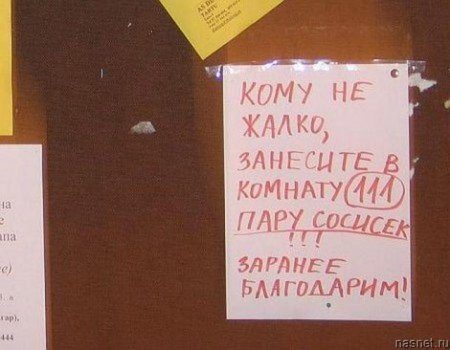 КОМУ НЕ
ЖАЛКО,
ЗАНЕСИТЕ В
КОМНАТУ 111
ПАРУ СОСИСЕК
!!!
ЗАРАНЕЕ
БЛАГОДАРИМ!
на
е
444
nasnet.ru